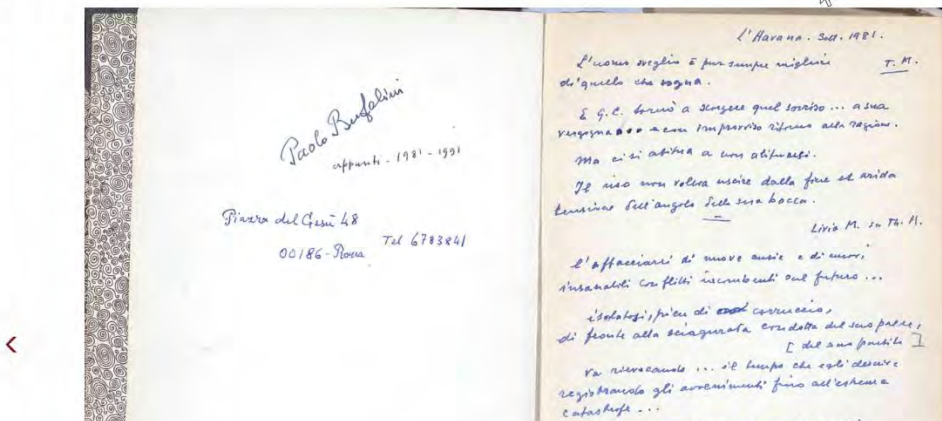 Paolo Bufalini
appunti - 1981 - 1991
Piazza del Gesù 48
00186 - Roma Tel 6783841
L'Havana. Sett. 1981.
L'uomo sveglio è pur sempre migliore T. M.
di quello che sogna.
E G.C. tornò a scorgere quel sorriso... a sua
vergogna e con improvviso ritorno alla ragione.
Ma ci si abitua a non abituarsi.
Il riso non voleva uscire dalla fine ed arida
tensione dell'angolo della sua bocca.
Livia M. su Th. M.
l'affacciarsi di nuove ansie e di nuovi,
insanabili conflitti incombenti sul futuro...
isolatosi, pieno di corruccio,
di fronte alla sciagurata condotta del suo paese,
[del suo partito]
va rievocando ... il tempo che egli descrive
registrando gli avvenimenti fino all'estrema
catastrofe...